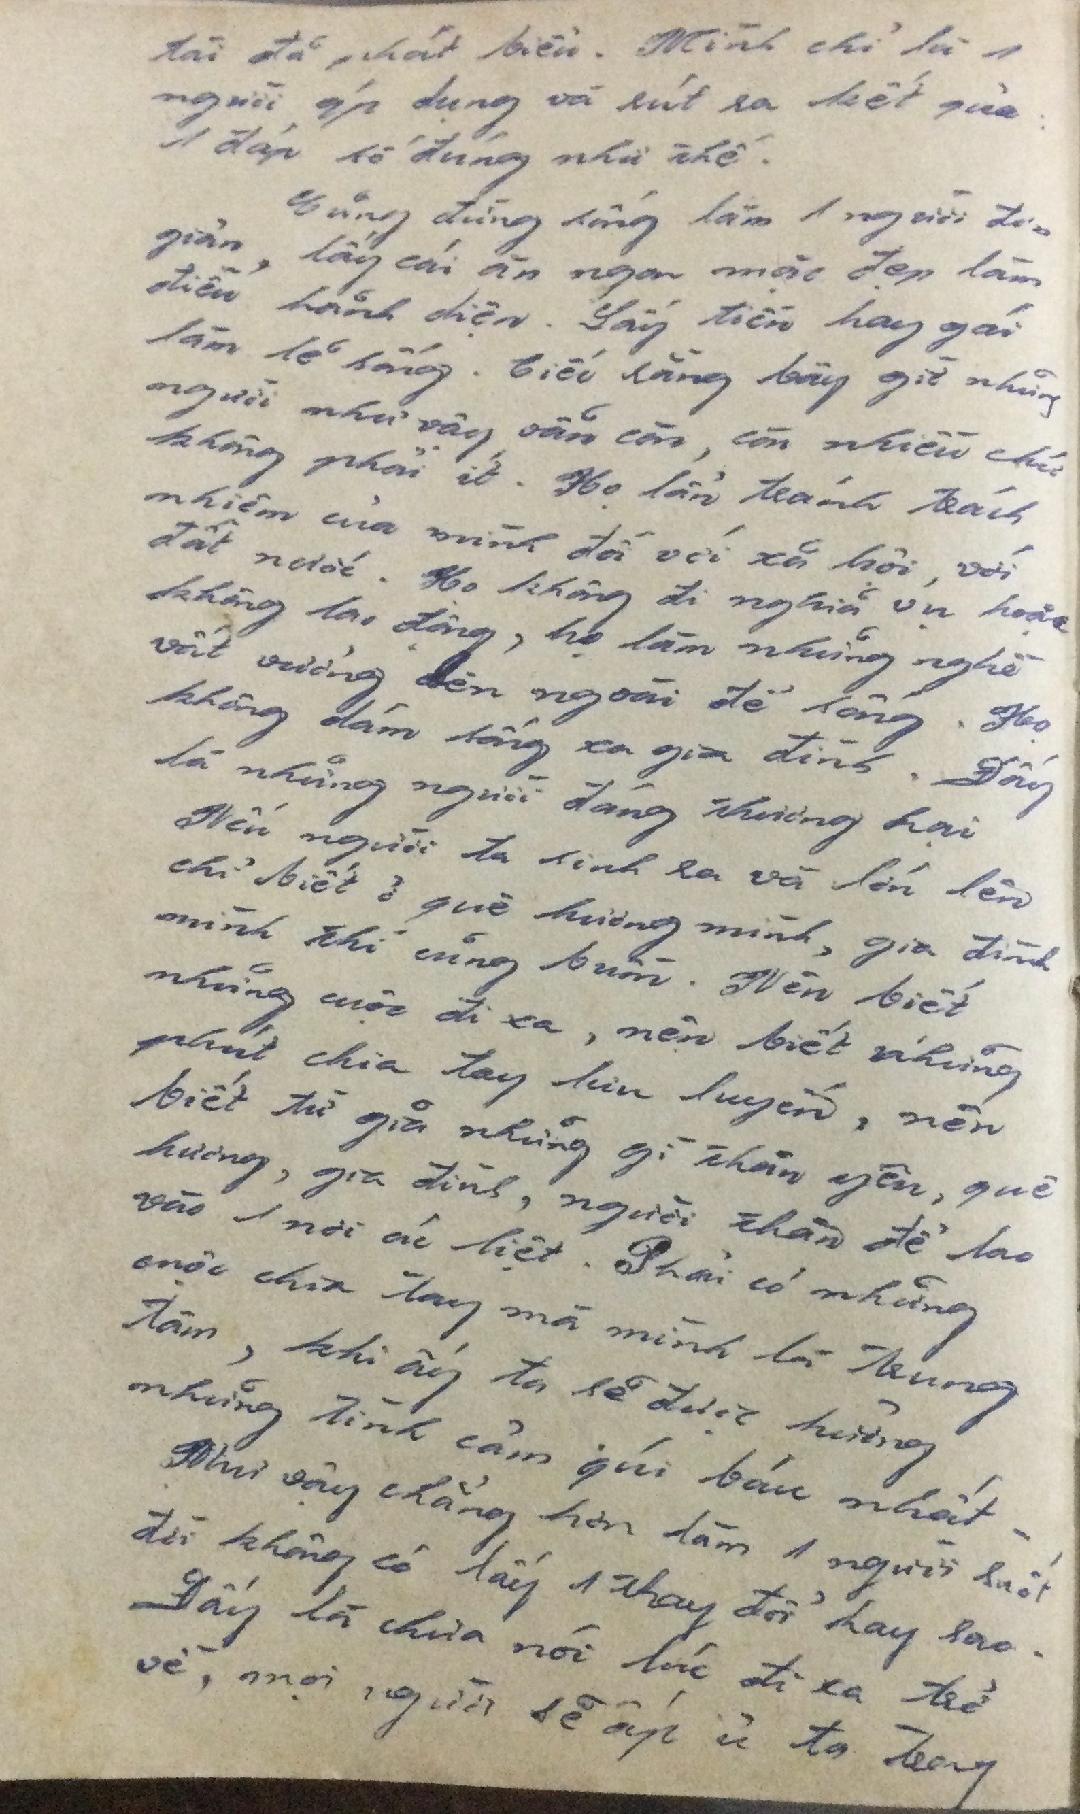 tài đã phát biểu. Mình chỉ là 1
người áp dụng và rút ra kết qủa
1 đáp số đúng như thế.
Cũng đừng sống làm 1 người đơn
giản, lấy cái ăn ngon mặc đẹp làm
điều hãnh diện. Lấy tiền hay gái
làm lẽ sống. Biết rằng bây giờ những
người như vậy vẫn còn, còn nhiều chứ
không phải ít. Họ lẩn tránh trách
nhiệm của mình đối với xã hội, với
đất nước. Họ không đi nghĩa vụ hoặc
không lao động, họ làm những nghề
vất vưởng bên ngoài để sống. Họ
không dám sống xa gia đình. Đấy
là những người đáng thương hại
Nếu người ta sinh ra và lớn lên
chỉ biết ở quê hương mình, gia đình
mình thì cũng buồn. Nên biết
những cuộc đi xa, nên biết những
phút chia tay lưu luyến, nên
biết từ giã những gì thân yêu, quê
hương, gia đình, người thân để lao
vào 1 nơi ác liệt. Phải có những
cuộc chia tay mà mình là trung
tâm, khi ấy ta sẽ được hưởng
những tình cảm qúi báu nhất.
Như vậy chẳng hơn làm 1 người suốt
đời không có lấy 1 thay đổi hay sao.
Đấy là chưa nói lúc đi xa trở
về, mọi người sẽ ấp ủ ta trong